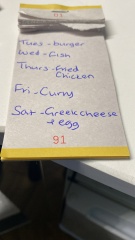 91
Tues - burger
Wed - fish
Thurs - fried
Chicken
Fri - Curry
Sat - Greek cheese
+ egg
91